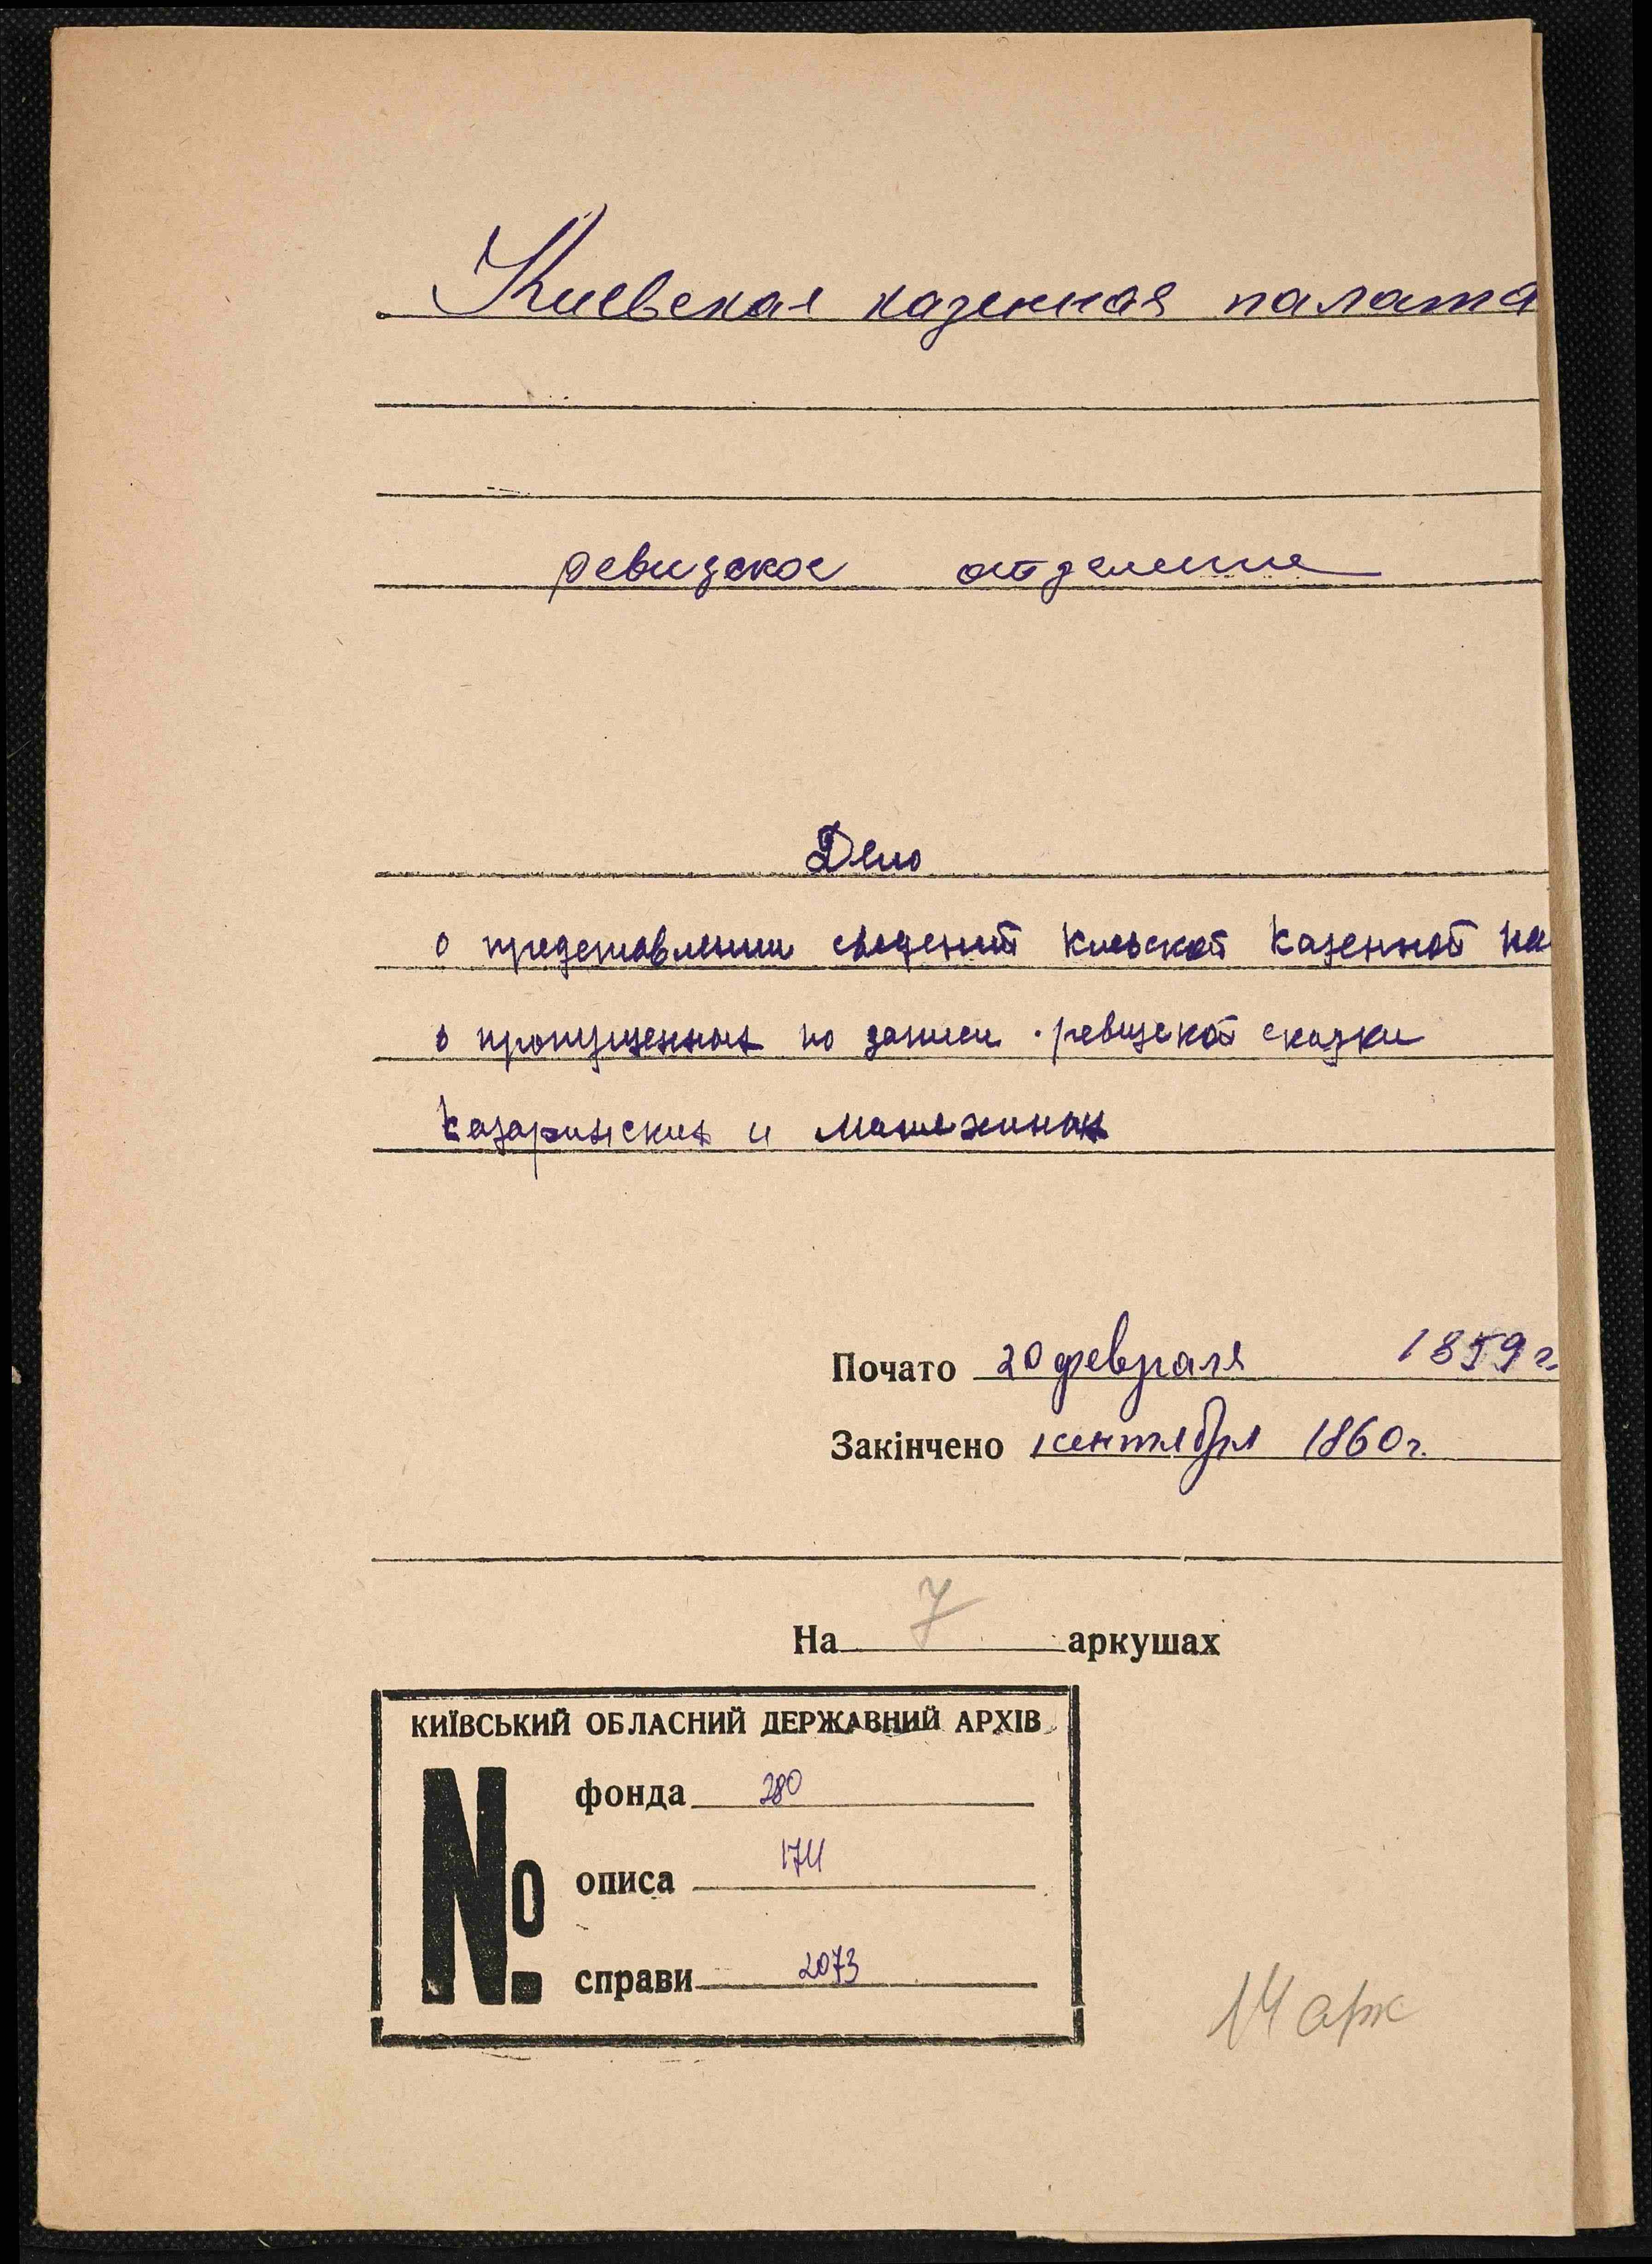 Киевская казенная палата
ревизское отделение
Дело
о представлении сведений Киевской Казенной па
о пропущенных по записи ревизской сказки
Казаринских и
Почато 20 февраля 1859 г.
Закінчено сентября 1860 г.
На 7 аркушах
КИЇВСЬКИЙ ОБЛАСНИЙ ДЕРЖАВНИЙ АРХІВ
№
фонда 280
описа 174
справи 2073
14 арк